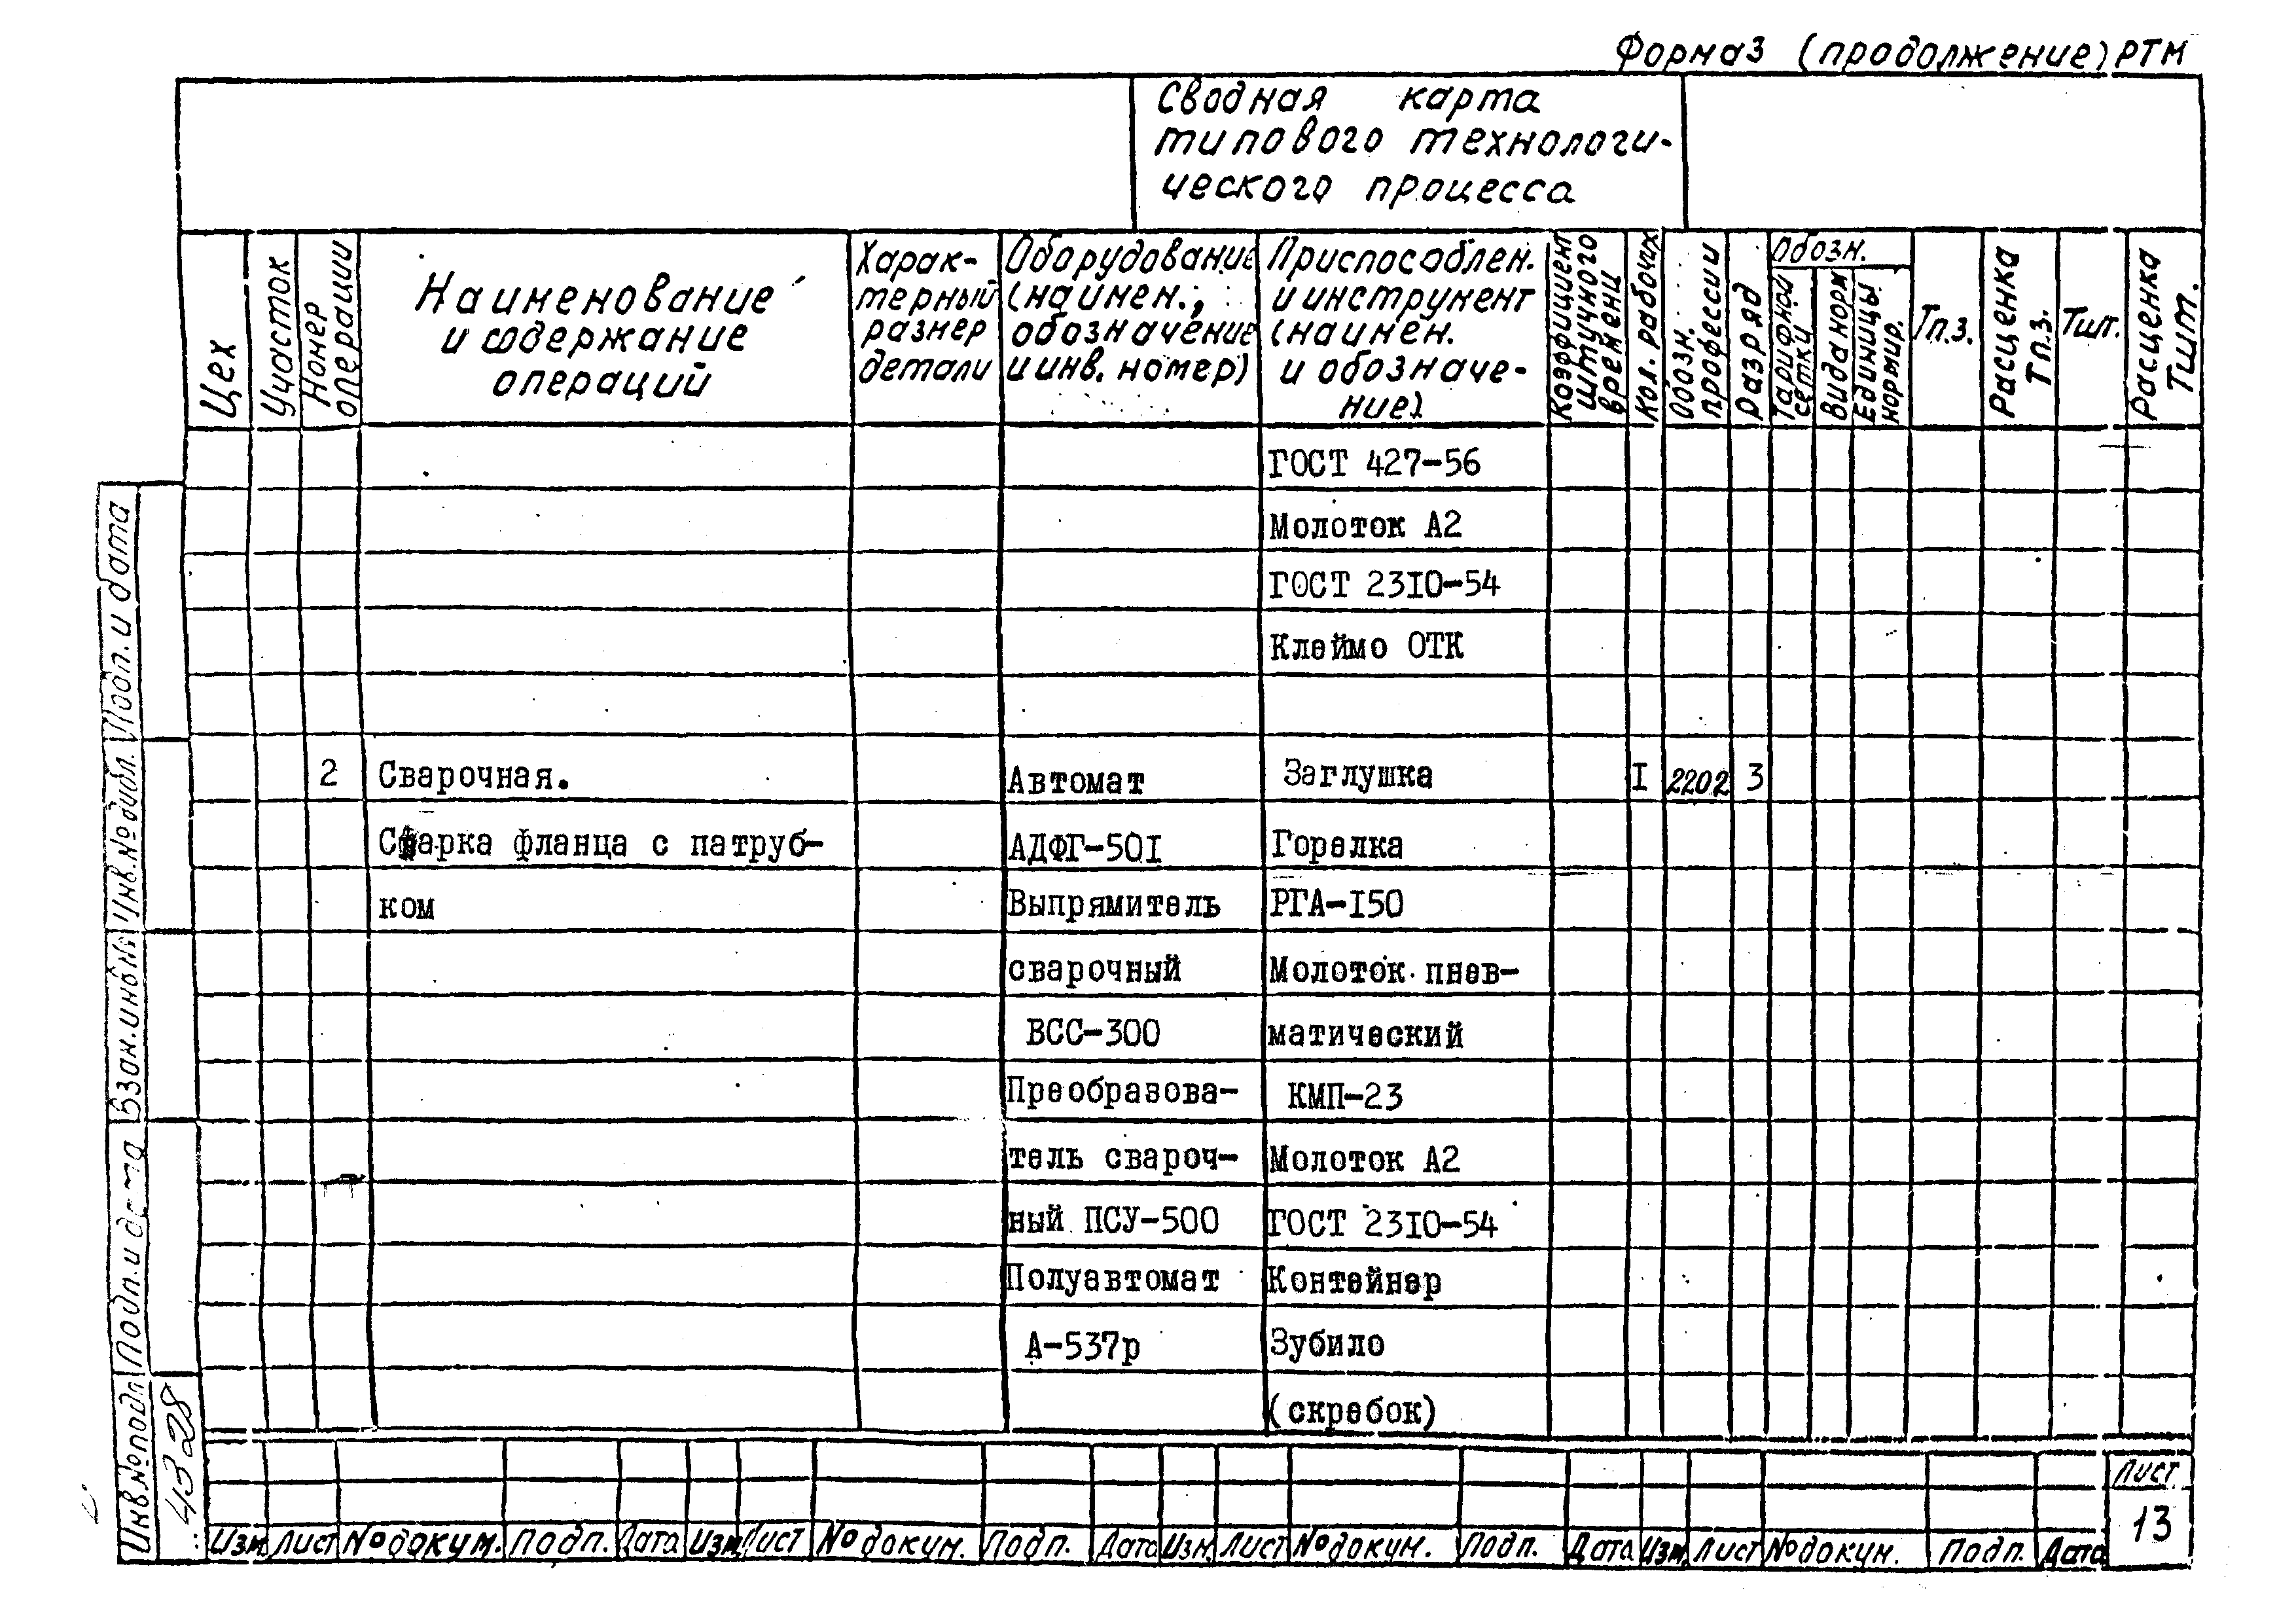 Форма 3 (продолжение) РТМ
Сводная карта
типового технологи-
ческого процесса
Цех
Участок
Номер
операции
Наименование
и содержание
операций
Харак-
терный
размер
детали
Оборудование
(наимен.,
обозначение
и инв. номер)
Приспособлен.
и инструмент
(наимен.
и обозначе-
ние)
Коэффициент
штучного
времени
Кол. рабочих
Обозн.
профессии
Разряд
Обозн.
Тарифной
сетки
Вида норм
Единицы
нормир.
Тп.з.
Расценка
Тп.з.
Тшт.
Расценка
Тшт.
ГОСТ 427-56
Молоток А2
ГОСТ 2310-54
Клеймо ОТК
2 Сварочная. Автомат Заглушка I 2202 3
Сварка фланца с патруб- АДФГ-50I Горелка
ком Выпрямитель РГА-I50
сварочный Молоток пнев-
ВСС-300 матический
Преобразова- КМП-23
тель свароч- Молоток А2
ный ПСУ-500 ГОСТ 23I0-54
Полуавтомат Контейнер
А-537р Зубило
(скребок)
Подп. и дата
Инв. № дубл.
Взам. инв. №
Подп. и дата
Инв. № подл.
4328
Изм Лист № докум. Подп. Дата Изм Лист № докум. Подп. Дата Изм. Лист № докум. Подп. Дата Изм. Лист № докум. Подп. Дата
Лист
13